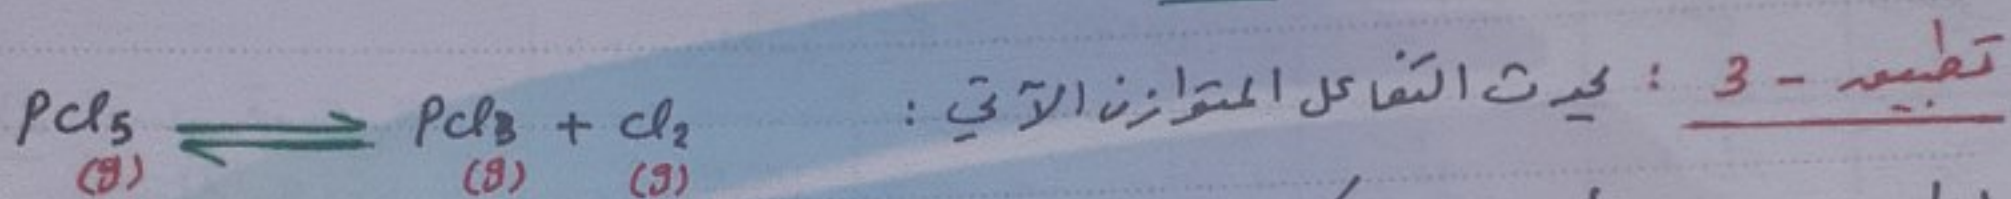 تطبيق - 3 : يحدث التفاعل المتوازن الآتي :
PCl5 ⇌ PCl3 + Cl2
(g) (g) (g)